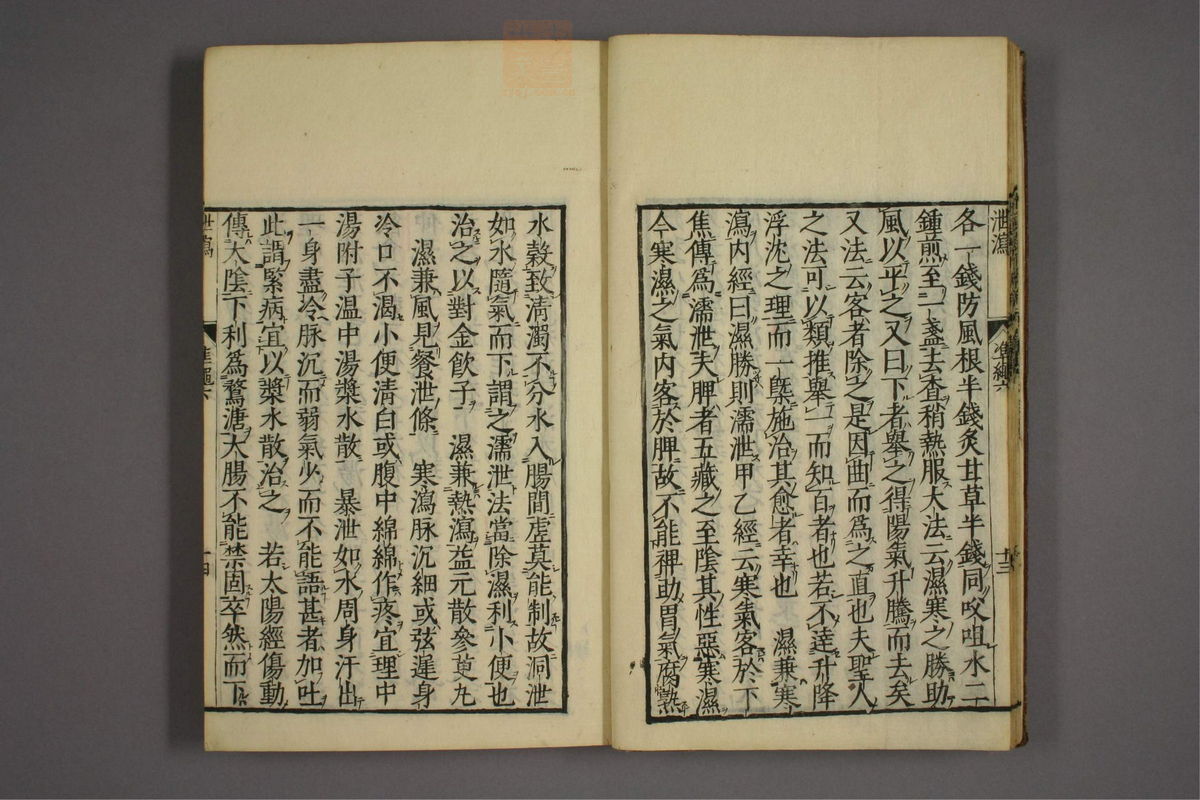 泄瀉 準繩六 十三
各一錢防風根半錢炙甘草半錢同㕮咀水二
鍾煎至一盞去査稍熱服大法云濕寒之勝助
風以平之又曰下者舉之得陽氣升騰而去矣
又法云客者除之是因曲而爲之直也夫聖人
之法可以類推舉一而知百者也若不達升降
浮沈之理而一槩施治其愈者幸也　濕兼寒
瀉内經曰濕勝則濡泄甲乙經云寒氣客於下
焦傳爲濡泄夫脾者五藏之至陰其性惡寒濕
今寒濕之氣内客於脾故不能裨助胃氣腐熟
水穀致清濁不分水入腸間虚莫能制故洞泄
如水隨氣而下謂之濡泄法當除濕利小便也
治之以對金飲子　濕兼熱瀉益元散參萸丸
濕兼風見飱泄條　寒瀉脉沉細或弦遲身
冷口不渴小便清白或腹中綿綿作疼宜理中
湯附子温中湯漿水散　暴泄如水周身汗出
一身盡冷脉沉而弱氣少而不能語甚者加吐
此謂緊病宜以漿水散治之　若太陽經傷動
傳太陰下利爲鶩溏大腸不能禁固卒然而下
泄瀉 準繩六 十四